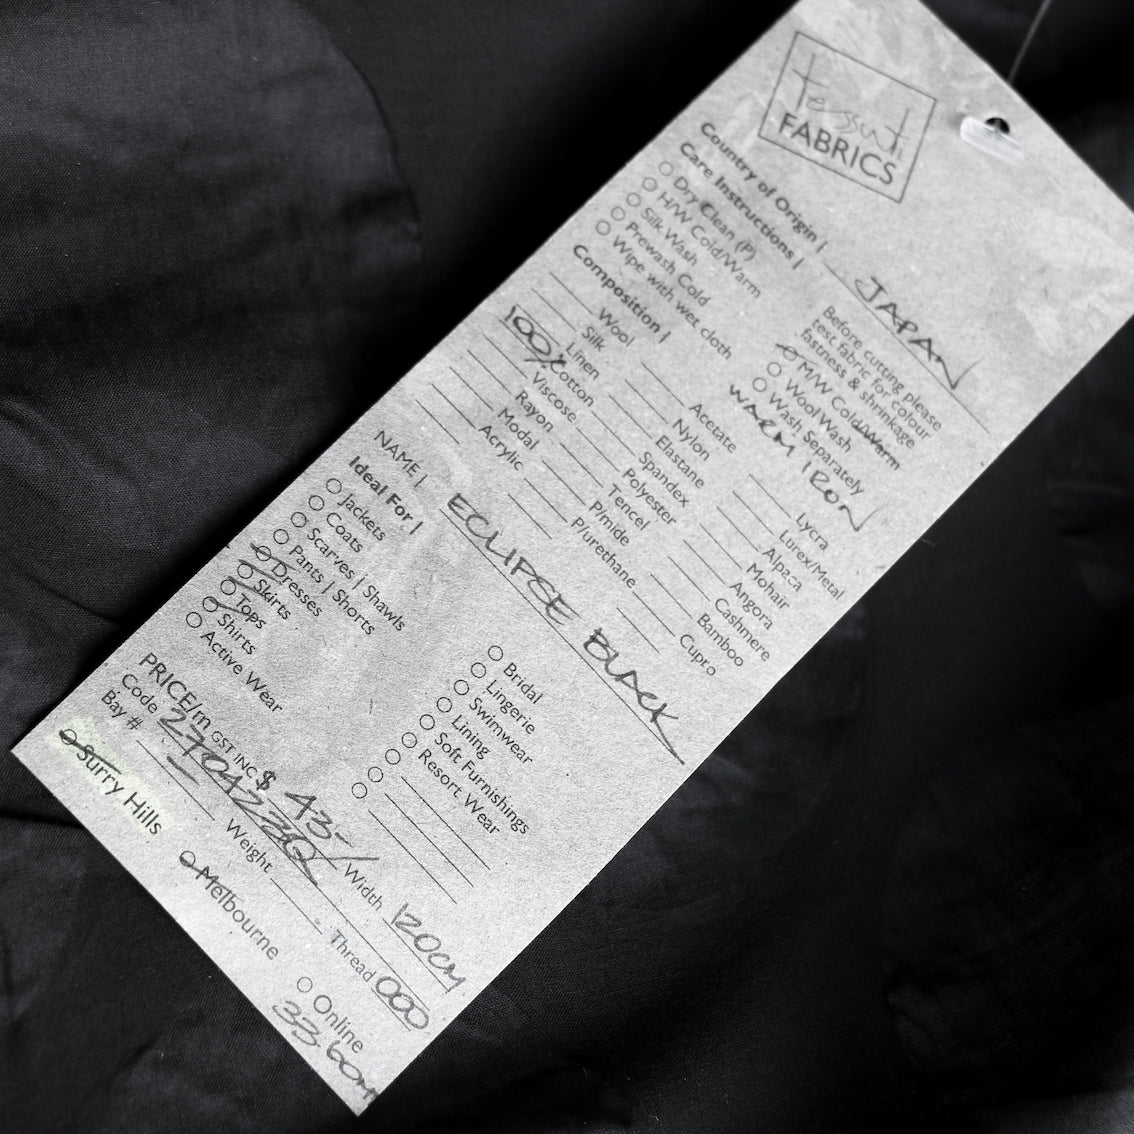 tessuti
FABRICS
Country of Origin | JAPAN
Care Instructions |
Dry Clean (P)
H/W Cold/Warm
Silk Wash
Prewash Cold
Wipe with wet cloth
Before cutting please
test fabric for colour
fastness & shrinkage
M/W Cold/Warm
Wool Wash
Wash Separately
WARM IRON
Composition |
Wool
Silk
Linen
100% Cotton
Viscose
Rayon
Modal
Acrylic
Acetate
Nylon
Elastane
Spandex
Polyester
Tencel
P/mide
P/urethane
Lycra
Lurex/Metal
Alpaca
Mohair
Angora
Cashmere
Bamboo
Cupro
NAME | ECLIPSE BLACK
Ideal For |
Jackets
Coats
Scarves | Shawls
Pants | Shorts
Dresses
Skirts
Tops
Shirts
Active Wear
Bridal
Lingerie
Swimwear
Lining
Soft Furnishings
Resort Wear
PRICE/m GST INC $ 43- Width 120cm
Code Thread 000
Bay # Weight
Surry Hills Melbourne Online
33.60m